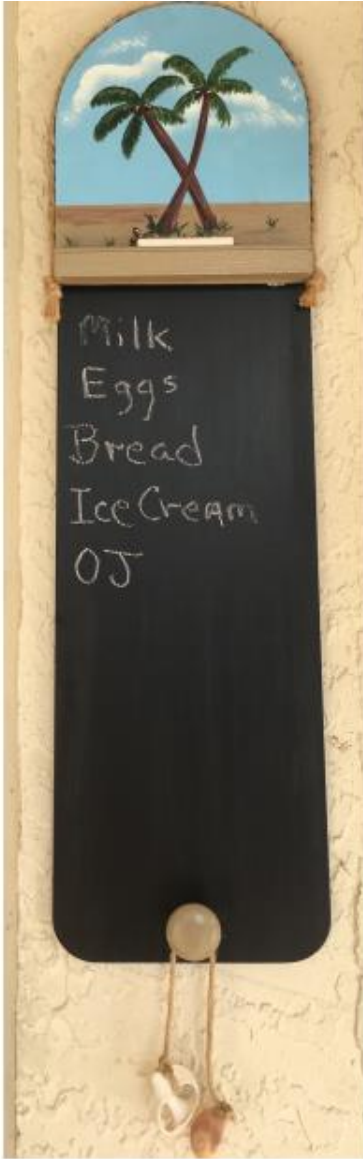 Milk
Eggs
Bread
Ice Cream
OJ